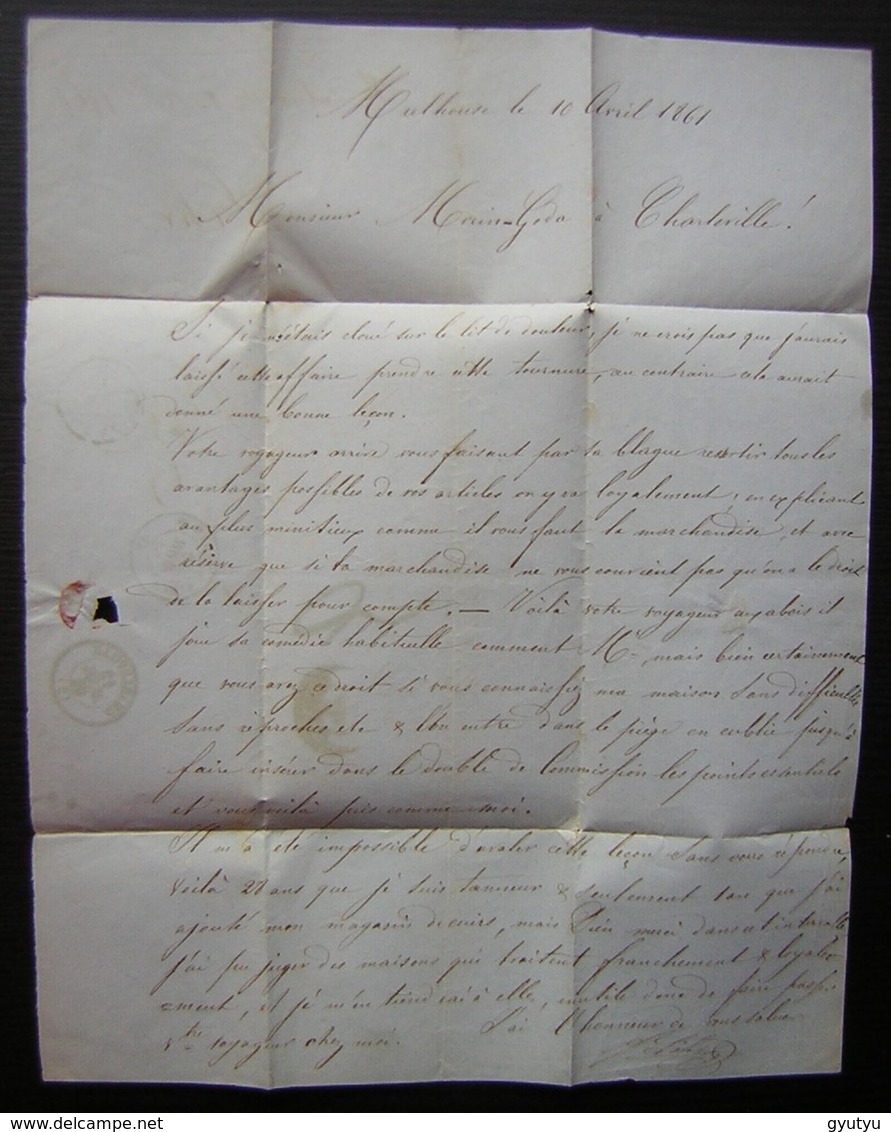 Mulhouse le 10 Avril 1861
Monsieur Morin-Goda à Charleville !
Si je n'étais cloué sur le lit de douleur, je ne crois pas que j'aurais
laissé cette affaire prendre cette tournure, au contraire cela aurait
donné une bonne leçon.
Votre voyageur arrive vous faisant par sa blague ressortir tous les
avantages possibles de vos articles on y va loyalement, en expliquant
au plus minitieux comme il vous faut la marchandise, et avec
réserve que si la marchandise ne vous convient pas qu'on a le droit
de la laisser pour compte. — Voilà votre voyageur aux abois il
joue sa comédie habituelle comment Mr, mais bien certainement
que vous avez ce droit si vous connaissiez ma maison sans difficultés
sans réproches etc & l'on entre dans le piège on oublie jusqu'à
faire insérer dans le double de Commission les points essentiels
et vous voilà pris comme moi.
Il m'a été impossible d'avaler cette leçon sans vous répondre,
voilà 28 ans que je suis tanneur & seulement que j'ai
ajouté mon magasin de cuirs, mais Dieu merci dans cet intervalle
j'ai pu juger des maisons qui traitent franchement & loyale-
=ment, et je m'en tiendrai à elle, inutile donc de faire passer
vtre voyageur chez moi. J'ai l'honneur de vous saluer
gyutyu